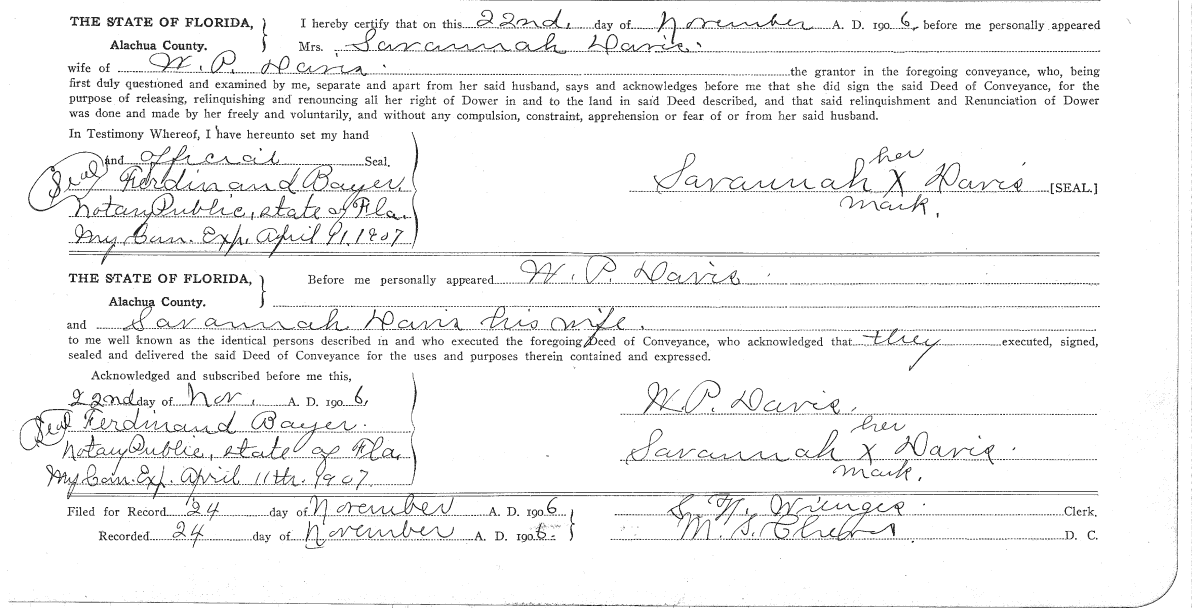 THE STATE OF FLORIDA, I hereby certify that on this 22nd, day of November A. D. 190 6, before me personally appeared
Alachua County. Mrs. Savannah Davis.
wife of W. P. Davis. the grantor in the foregoing conveyance, who, being
first duly questioned and examined by me, separate and apart from her said husband, says and acknowledges before me that she did sign the said Deed of Conveyance, for the
purpose of releasing, relinquishing and renouncing all her right of Dower in and to the land in said Deed described, and that said relinquishment and Renunciation of Dower
was done and made by her freely and voluntarily, and without any compulsion, constraint, apprehension or fear of or from her said husband.
In Testimony Whereof, I have hereunto set my hand
and official Seal.
Seal Ferdinand Bayer.
Notary Public, state of Fla.
My Com. Exp. April 1907
her
Savannah X Davis [SEAL.]
mark.
THE STATE OF FLORIDA, Before me personally appeared W. P. Davis
Alachua County.
and Savannah Davis his wife.
to me well known as the identical persons described in and who executed the foregoing Deed of Conveyance, who acknowledged that they executed, signed,
sealed and delivered the said Deed of Conveyance for the uses and purposes therein contained and expressed.
Acknowledged and subscribed before me this,
22nd day of Nov. A. D. 190 6,
Seal Ferdinand Bayer.
Notary Public, state of Fla.
My Com. Exp. April 11th. 1907.
W. P. Davis.
her
Savannah X Davis.
mark.
Filed for Record 24 day of November A. D. 190 6 S. H. Wienges Clerk.
Recorded 24 day of November A. D. 190 6. M. S. D. C.